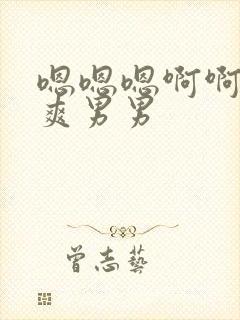 嗯嗯嗯啊啊
爽男男
曾志藝